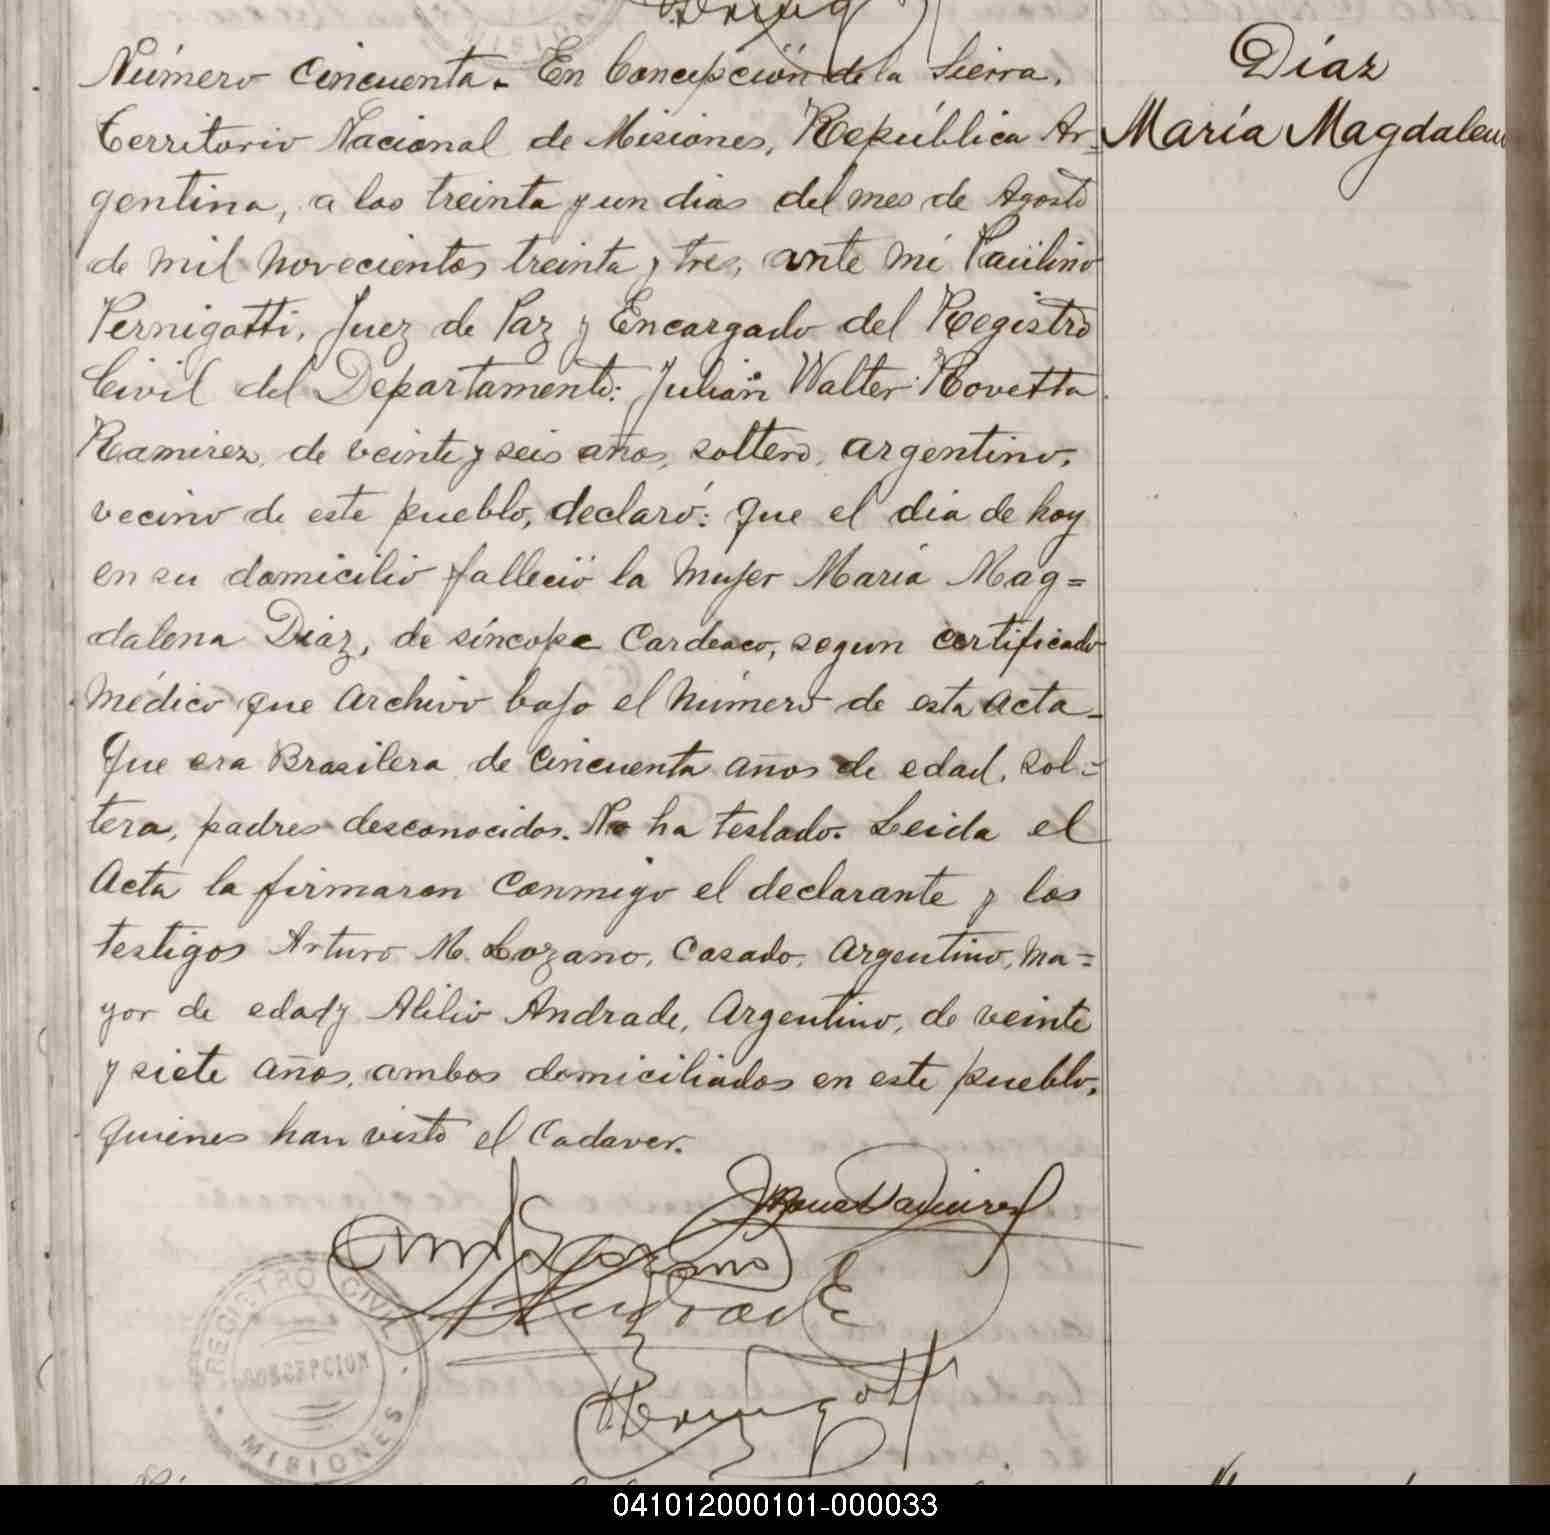 Díaz
María Magdalen
Número cincuenta. En Concepción de la Sierra,
Territorio Nacional de Misiones, República Ar-
gentina, a los treinta y un dias del mes de Agosto
de mil novecientos treinta y tres, ante mí Paulino
Pernigotti, Juez de Paz y Encargado del Registro
Civil del Departamento: Julián Walter Rovetta
Ramirez, de veinte y seis años, soltero, argentino,
vecino de este pueblo, declaró: que el dia de hoy
en su domicilio falleció la mujer María Mag=
dalena Diaz, de síncope Cardeaco, segun certificado
médico que archivo bajo el número de esta acta-
Que era Brasilera de cincuenta años de edad, sol=
tera, padres desconocidos. No ha testado. Leida el
Acta la firmaron conmigo el declarante y los
testigos Arturo M. Lozano, casado, argentino, ma=
yor de edad y Alilio Andrade, Argentino, de veinte
y siete años, ambos domiciliados en este pueblo,
quienes han visto el cadaver.
Andrade
Pernigotti
REGISTRO CIVIL
CONCEPCION
MISIONES
041012000101-000033